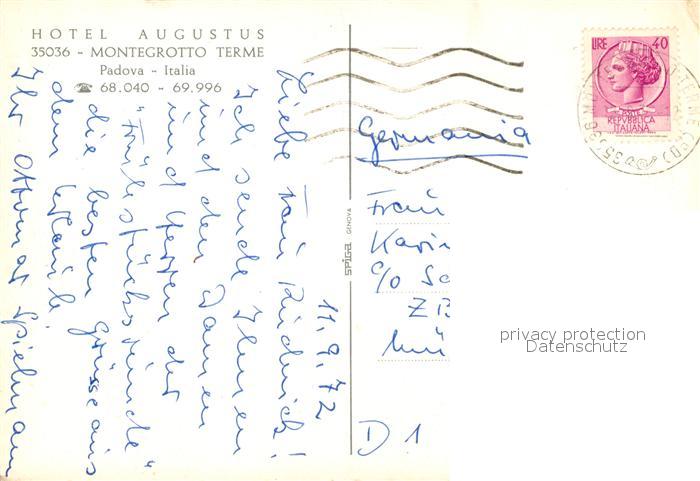 HOTEL AUGUSTUS
35036 - MONTEGROTTO TERME
Padova - Italia
☎ 68.040 - 69.996
11.9.72
Liebe Frau
Ich sende Ihnen
und den Damen
und Herren der
"Frühstücksrunde"
die besten Grüsse aus
dem Urlaub!
Ihr Othmar Spielmann
SPIGA GENOVA
LIRE 40
POSTE
REPVBBLICA
ITALIANA
35036
Germania
Frau
Karin
c/o Sc
ZB
Mü
D 1
privacy protection
Datenschutz